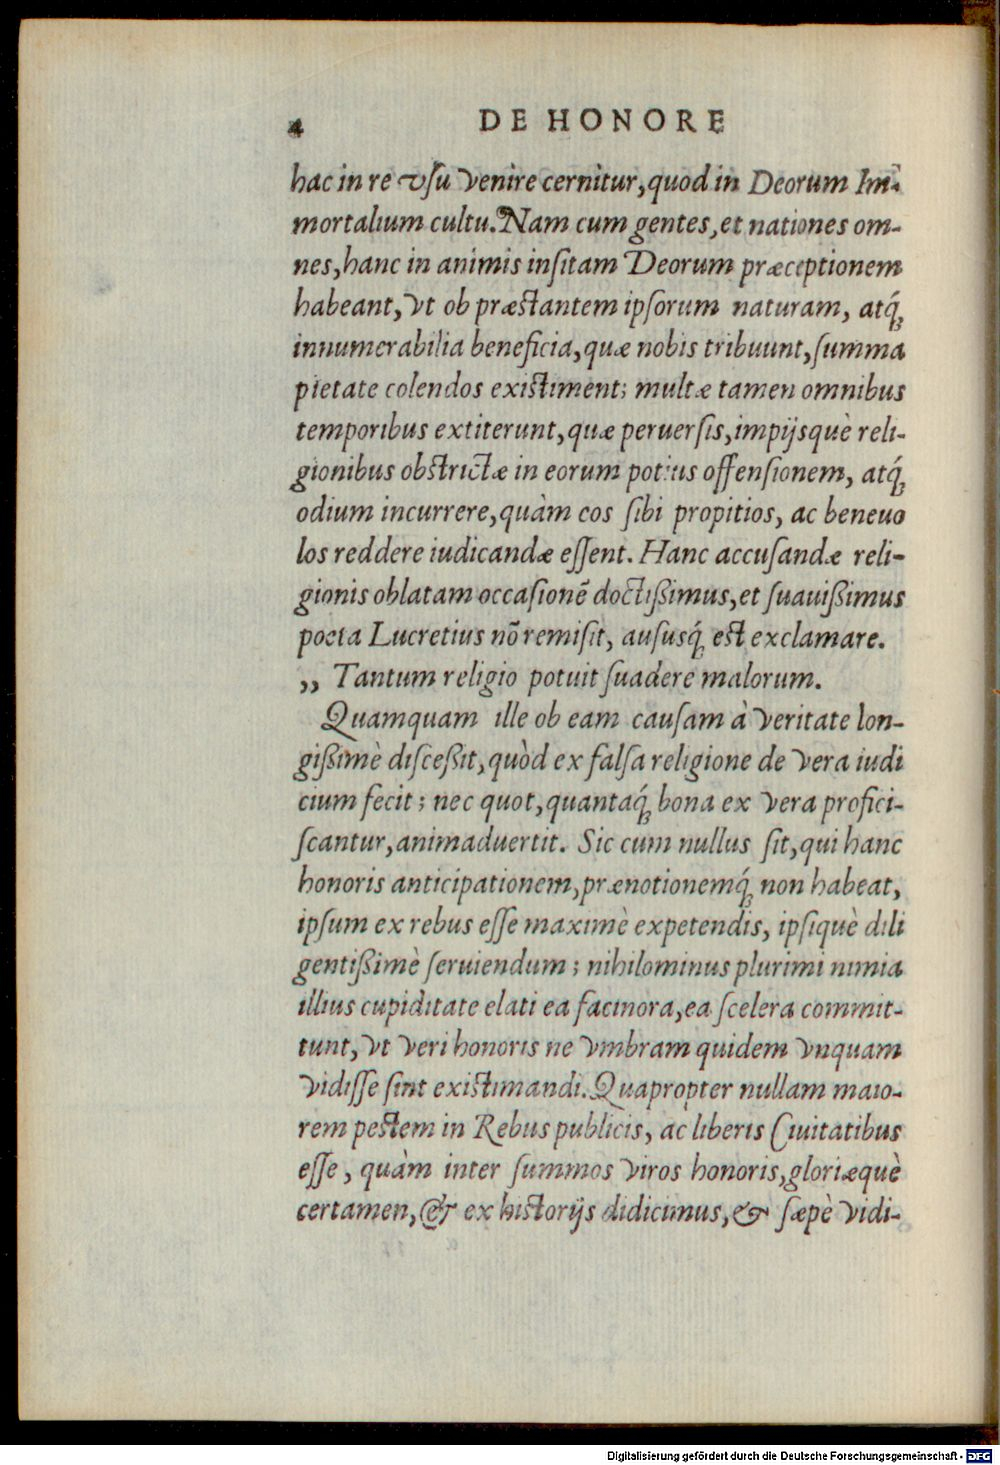 4 DE HONORE
hac in re vſu venire cernitur, quod in Deorum Im-
mortalium cultu. Nam cum gentes, et nationes om-
nes, hanc in animis inſitam Deorum præceptionem
habeant, vt ob præstantem ipſorum naturam, atq́;
innumerabilia beneficia, quæ nobis tribuunt, ſumma
pietate colendos existiment; multæ tamen omnibus
temporibus extiterunt, quæ peruerſis, impijsquè reli-
gionibus obstrictæ in eorum potius offenſionem, atq́;
odium incurrere, quàm eos ſibi propitios, ac beneuo
los reddere iudicandæ eſſent. Hanc accuſandæ reli-
gionis oblatam occaſionē doctißimus, et ſuauißimus
poeta Lucretius nō remiſit, auſusq́; est exclamare.
„ Tantum religio potuit ſuadere malorum.
Quamquam ille ob eam cauſam à veritate lon-
gißimè diſceßit, quòd ex falſa religione de vera iudi
cium fecit; nec quot, quantaq́; bona ex vera profici-
ſcantur, animaduertit. Sic cum nullus ſit, qui hanc
honoris anticipationem, prænotionemq́; non habeat,
ipſum ex rebus eſſe maximè expetendis, ipſiquè dili
gentißimè ſeruiendum; nihilominus plurimi nimia
illius cupiditate elati ea facinora, ea ſcelera commit-
tunt, vt veri honoris ne vmbram quidem vnquam
vidiſſe ſint existimandi. Quapropter nullam maio-
rem pestem in Rebus publicis, ac liberis Ciuitatibus
eſſe, quàm inter ſummos viros honoris, gloriæquè
certamen, & ex historijs didicimus, & ſæpè vidi-
Digitalisierung gefördert durch die Deutsche Forschungsgemeinschaft - DFG